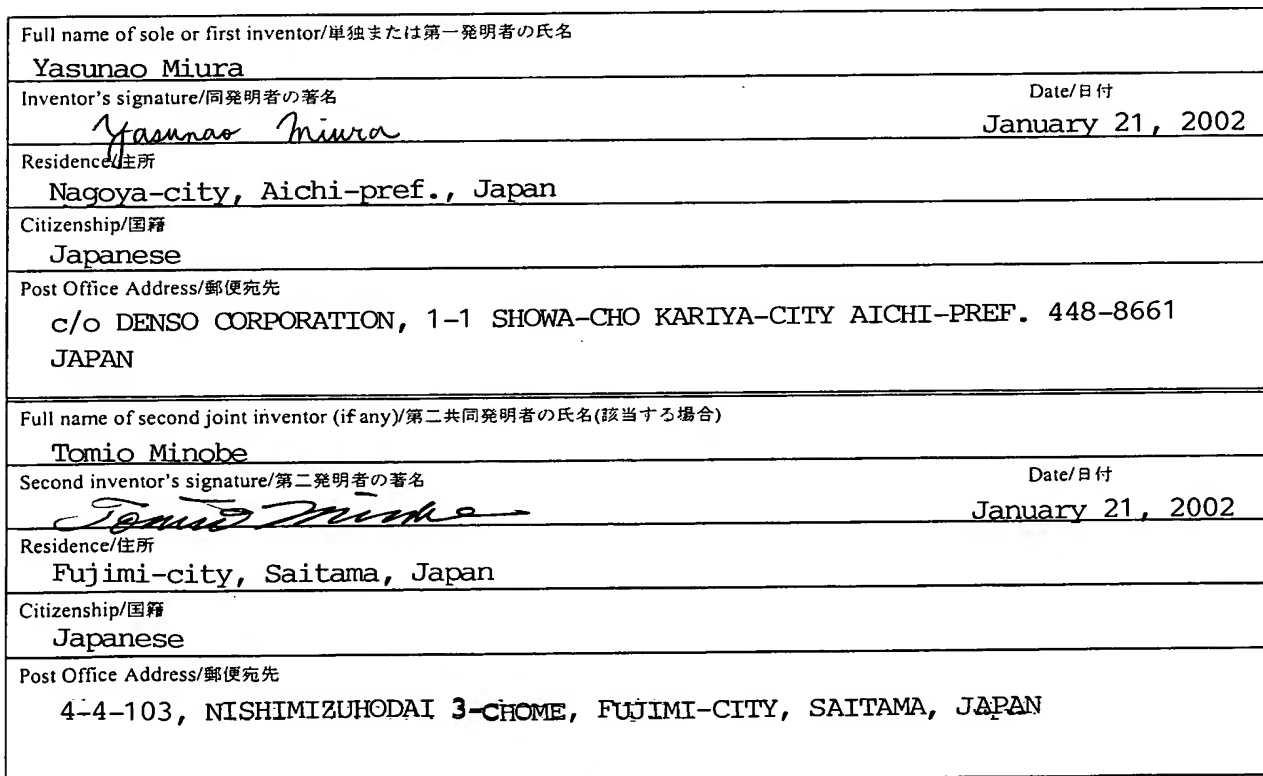 Full name of sole or first inventor/単独または第一発明者の氏名
Yasunao Miura
Inventor's signature/同発明者の署名 Date/日付
Yasunao Miura January 21, 2002
Residence/住所
Nagoya-city, Aichi-pref., Japan
Citizenship/国籍
Japanese
Post Office Address/郵便宛先
c/o DENSO CORPORATION, 1-1 SHOWA-CHO KARIYA-CITY AICHI-PREF. 448-8661
JAPAN
Full name of second joint inventor (if any)/第二共同発明者の氏名(該当する場合)
Tomio Minobe
Second inventor's signature/第二発明者の署名 Date/日付
Tomio Minobe January 21, 2002
Residence/住所
Fujimi-city, Saitama, Japan
Citizenship/国籍
Japanese
Post Office Address/郵便宛先
4-4-103, NISHIMIZUHODAI 3-CHOME, FUJIMI-CITY, SAITAMA, JAPAN